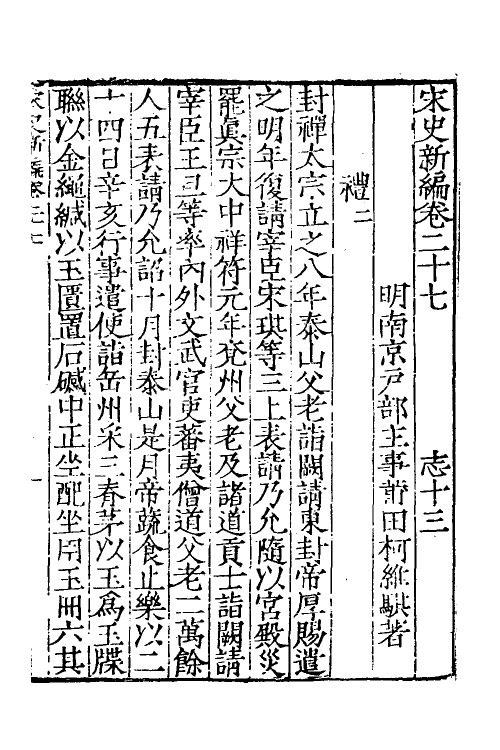 宋史新編卷二十七 志十三
明南京戸部主事莆田柯維騏著
禮二
封禪太宗立之八年泰山父老詣闕請東封帝厚賜遣
之明年復請宰臣宋琪等三上表請乃允隨以宮殿災
罷眞宗大中祥符元年兖州父老及諸道貢士詣闕請
宰臣王旦等率內外文武官吏蕃夷僧道父老二萬餘
人五表請乃允詔十月封泰山是月帝蔬食止樂以二
十四日辛亥行事遣使詣岳州采三脊茅以玉爲玉牒
聯以金繩緘以玉匱置石䃭中正坐配坐用玉冊六其
宋史新編卷二十七
一